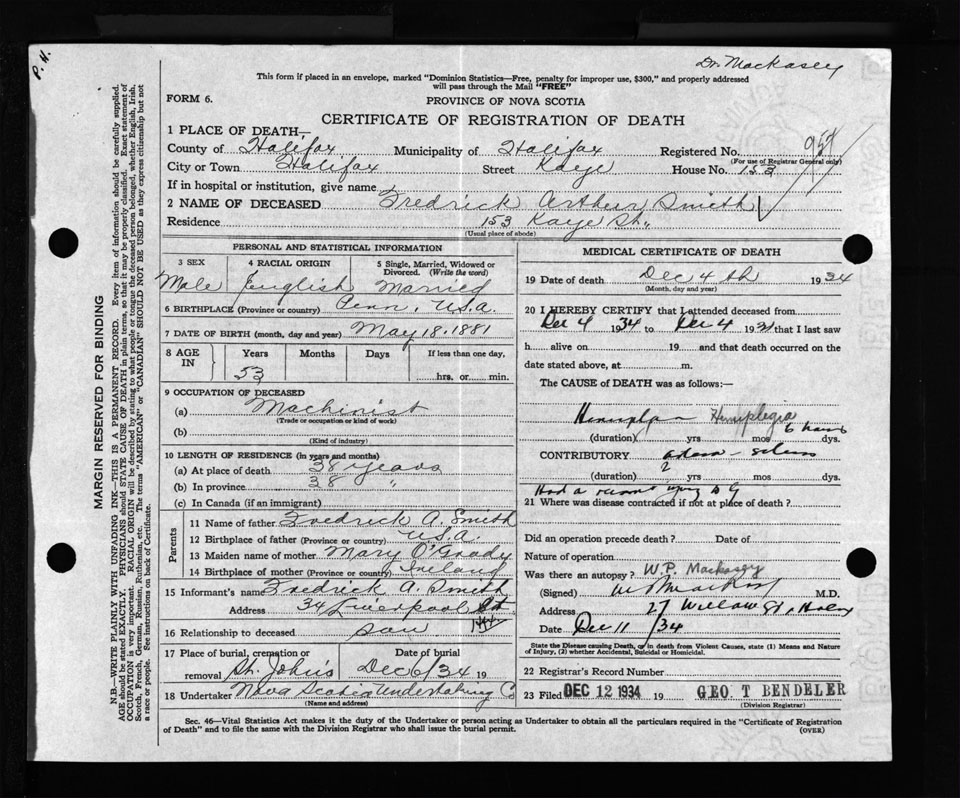 P. H.
Dr. Mackasey
This form if placed in an envelope, marked "Dominion Statistics—Free, penalty for improper use, $300," and properly addressed
will pass through the Mail "FREE"
FORM 6.
PROVINCE OF NOVA SCOTIA
CERTIFICATE OF REGISTRATION OF DEATH
1 PLACE OF DEATH,—
County of Halifax Municipality of Halifax Registered No. 957
(For use of Registrar General only)
City or Town Halifax Street Kaye House No. 153
If in hospital or institution, give name
2 NAME OF DECEASED Fredrick Arthur Smith
Residence 153 Kaye St.
(Usual place of abode)
MARGIN RESERVED FOR BINDING
N.B.—WRITE PLAINLY WITH UNFADING INK—THIS IS A PERMANENT RECORD. Every item of information should be carefully supplied.
AGE should be stated EXACTLY. PHYSICIANS should STATE CAUSE OF DEATH in plain terms, so that it may be properly classified. Exact statement of
OCCUPATION is very important. RACIAL ORIGIN will be described by stating to what people or tongue the deceased person belonged, whether English, Irish,
Scotch, French, German, Russian, Ruthenian, etc. The terms "AMERICAN" or "CANADIAN" SHOULD NOT BE USED as they express citizenship but not
a race or people. See instructions on back of Certificate.
PERSONAL AND STATISTICAL INFORMATION
3 SEX 4 RACIAL ORIGIN 5 Single, Married, Widowed or
Divorced. (Write the word)
Male English Married
6 BIRTHPLACE (Province or country) Penn, U.S.A.
7 DATE OF BIRTH (month, day and year) May 18. 1881
8 AGE IN Years Months Days If less than one day,
53 hrs. or min.
9 OCCUPATION OF DECEASED
(a) Machinist
(Trade or occupation or kind of work)
(b)
(Kind of industry)
10 LENGTH OF RESIDENCE (in years and months)
(a) At place of death 38 years
(b) In province 38 "
(c) In Canada (if an immigrant)
Parents
11 Name of father Fredrick A. Smith
12 Birthplace of father (Province or country) U.S.A.
13 Maiden name of mother Mary O'Grady
14 Birthplace of mother (Province or country) Ireland
15 Informant's name Fredrick A. Smith
Address 34 Liverpool St
16 Relationship to deceased son
17 Place of burial, cremation or Date of burial
removal St. John's Dec 6/34 19
18 Undertaker Nova Scotia Undertaking Co
(Name and address)
MEDICAL CERTIFICATE OF DEATH
19 Date of death Dec 4 th 1934
(Month, day and year)
20 I HEREBY CERTIFY that I attended deceased from
Dec 4 1934 to Dec 4 193 that I last saw
h alive on 19 and that death occurred on the
date stated above, at m.
The CAUSE of DEATH was as follows:—
Hemiplegia
(duration) yrs mos 6 hours dys.
CONTRIBUTORY
(duration) 2 yrs mos dys.
Had a
21 Where was disease contracted if not at place of death?
Did an operation precede death? Date of
Nature of operation
Was there an autopsy? W. P. Mackasey
(Signed) M.D.
Address 27 Willow St, Halifx
Date Dec 11 /34
State the Disease causing Death, or in death from Violent Causes, state (1) Means and Nature
of Injury, (2) whether Accidental, Suicidal or Homicidal.
22 Registrar's Record Number
23 Filed DEC 12 1934 19 GEO T BENDELER
(Division Registrar)
Sec. 46—Vital Statistics Act makes it the duty of the Undertaker or person acting as Undertaker to obtain all the particulars required in the "Certificate of Registration
of Death" and to file the same with the Division Registrar who shall issue the burial permit. (OVER)